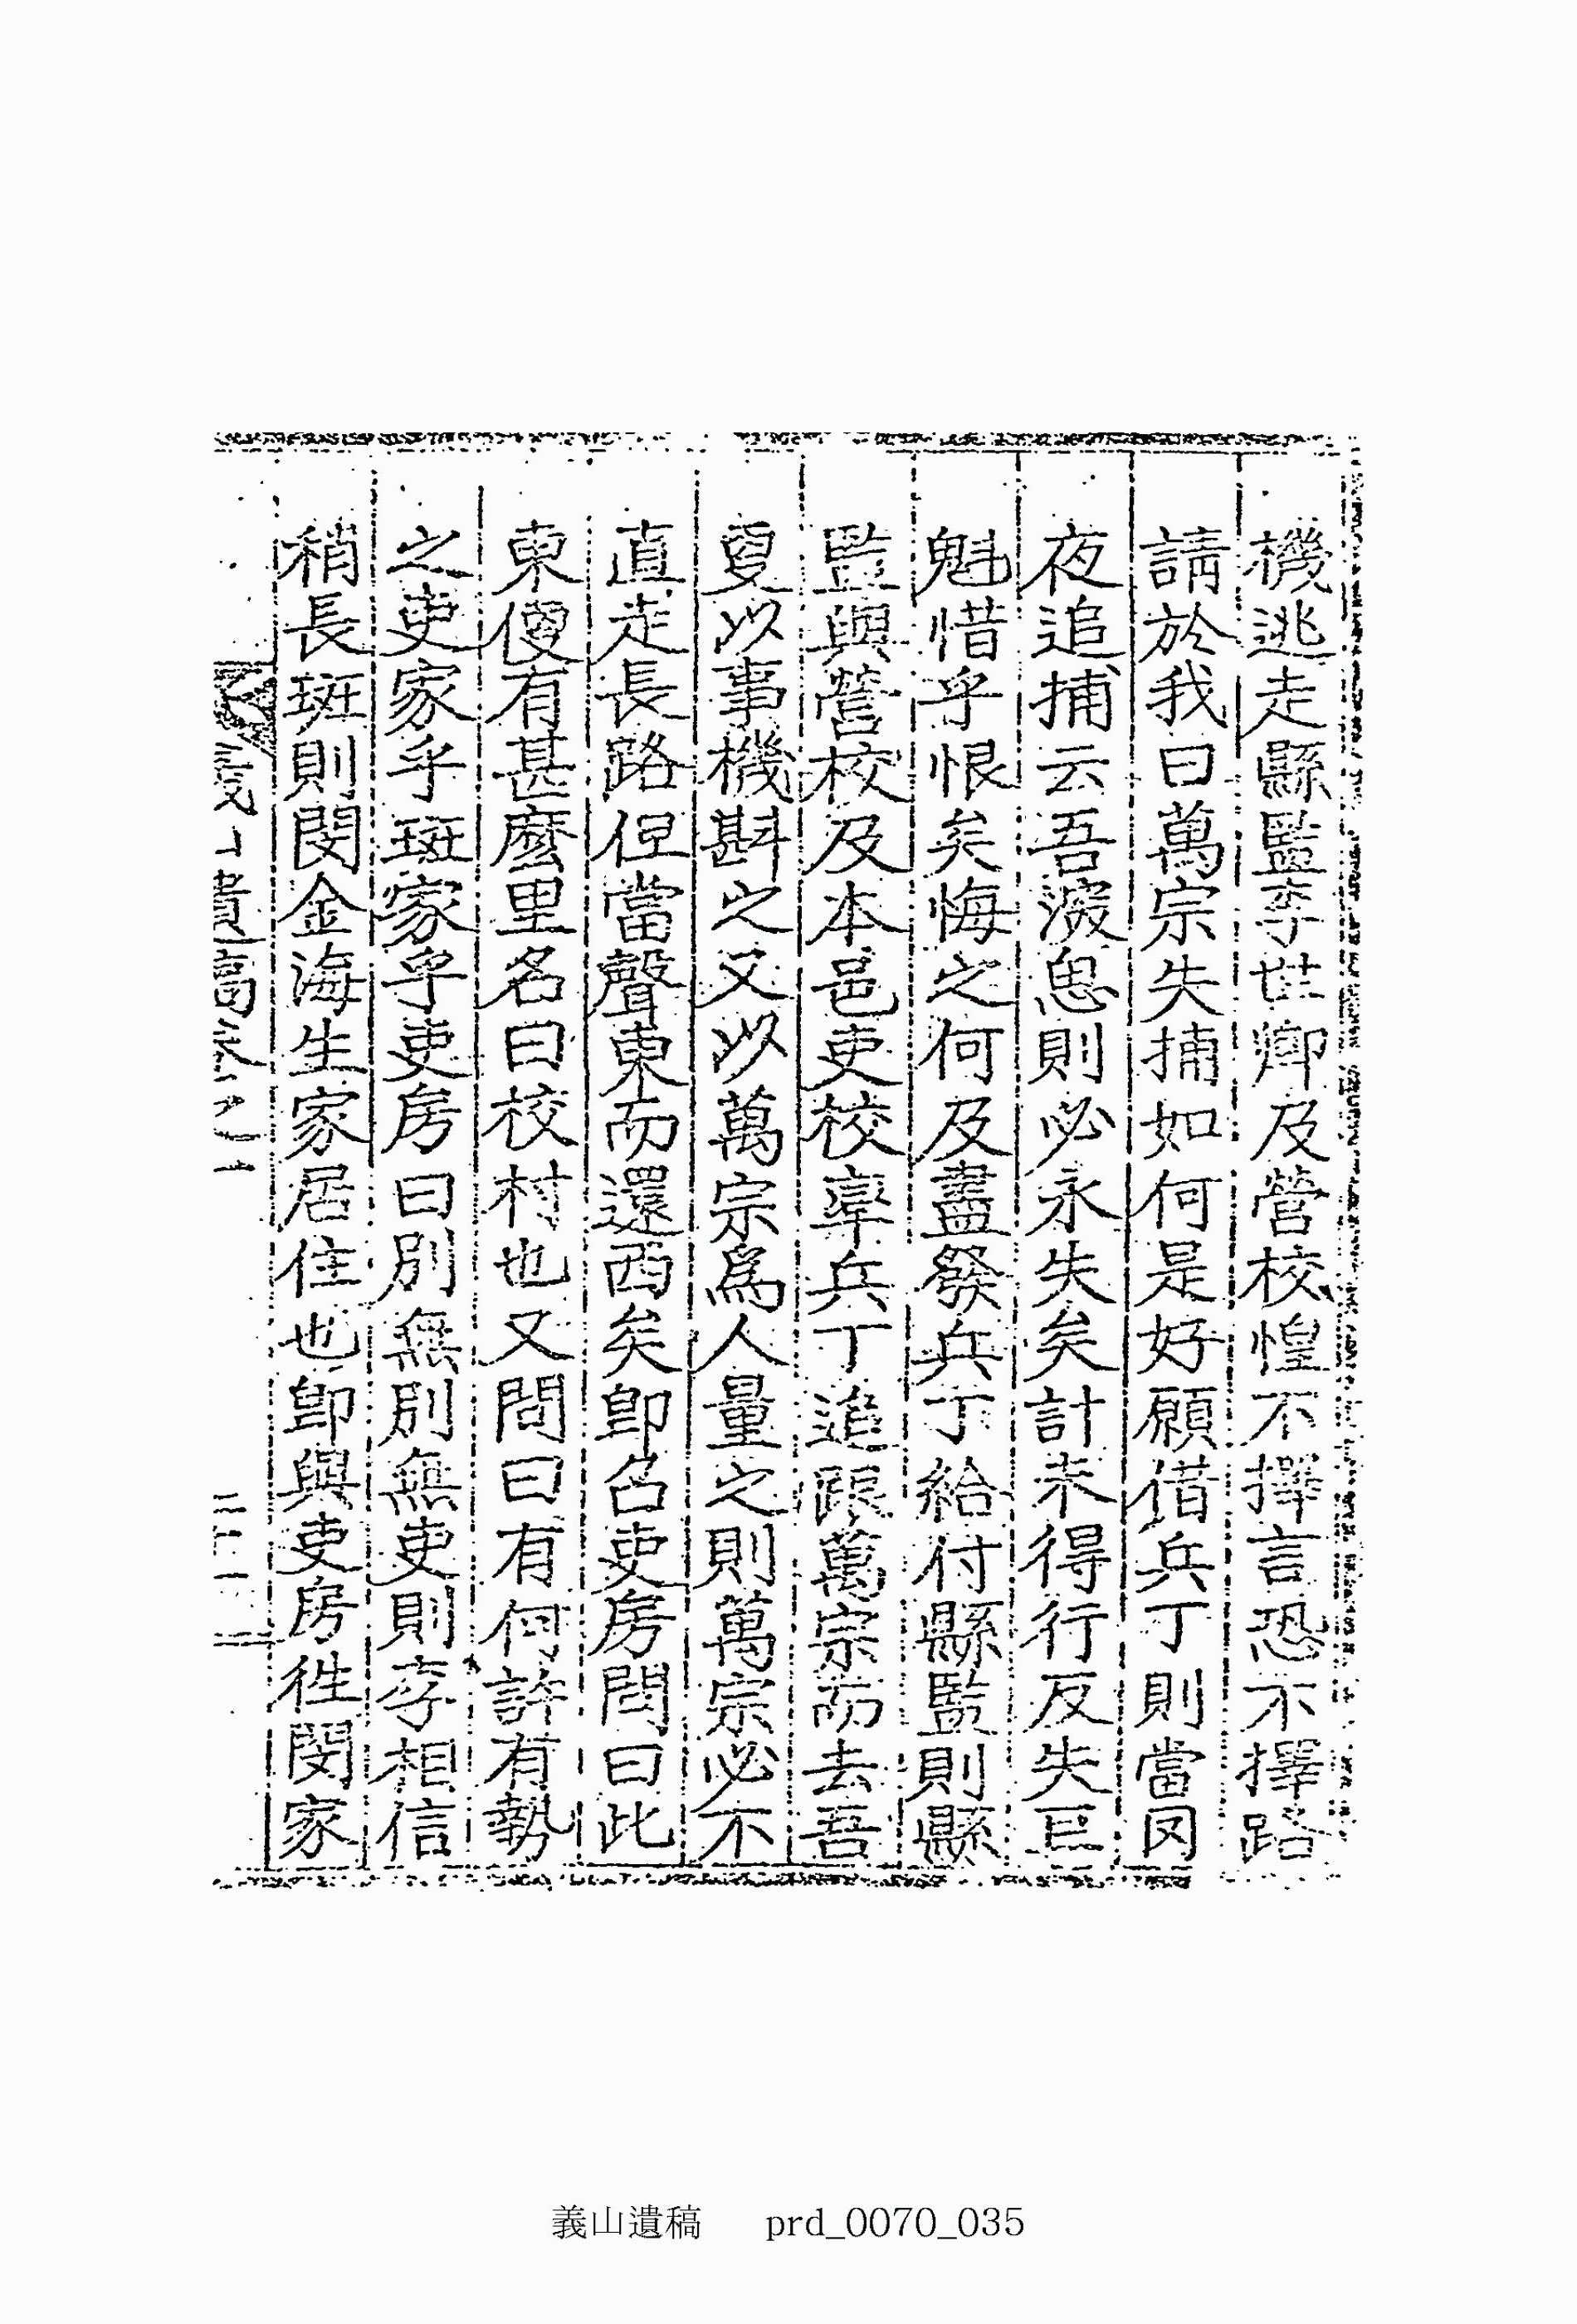 機逃走縣監李世卿及營校惶不擇言恐不擇路
請於我曰萬宗失捕如何是好願借兵丁則當罔
夜追捕云吾深思則必永失矣計未得行反失巨
魁惜乎恨矣悔之何及盡發兵丁給付縣監則縣
監與營校及本邑吏校率兵丁追跟萬宗而去吾
更以事機斟之又以萬宗爲人量之則萬宗必不
直走長路但當聲東而還西矣卽召吏房問曰此
東便有甚麽里名曰校村也又問曰有何許有勢
之吏家乎班家乎吏房曰別無別無吏則李相信
稍長班則閔金海生家居住也卽與吏房徃閔家
義山遺稿卷之一
義山遺稿 prd_0070_035